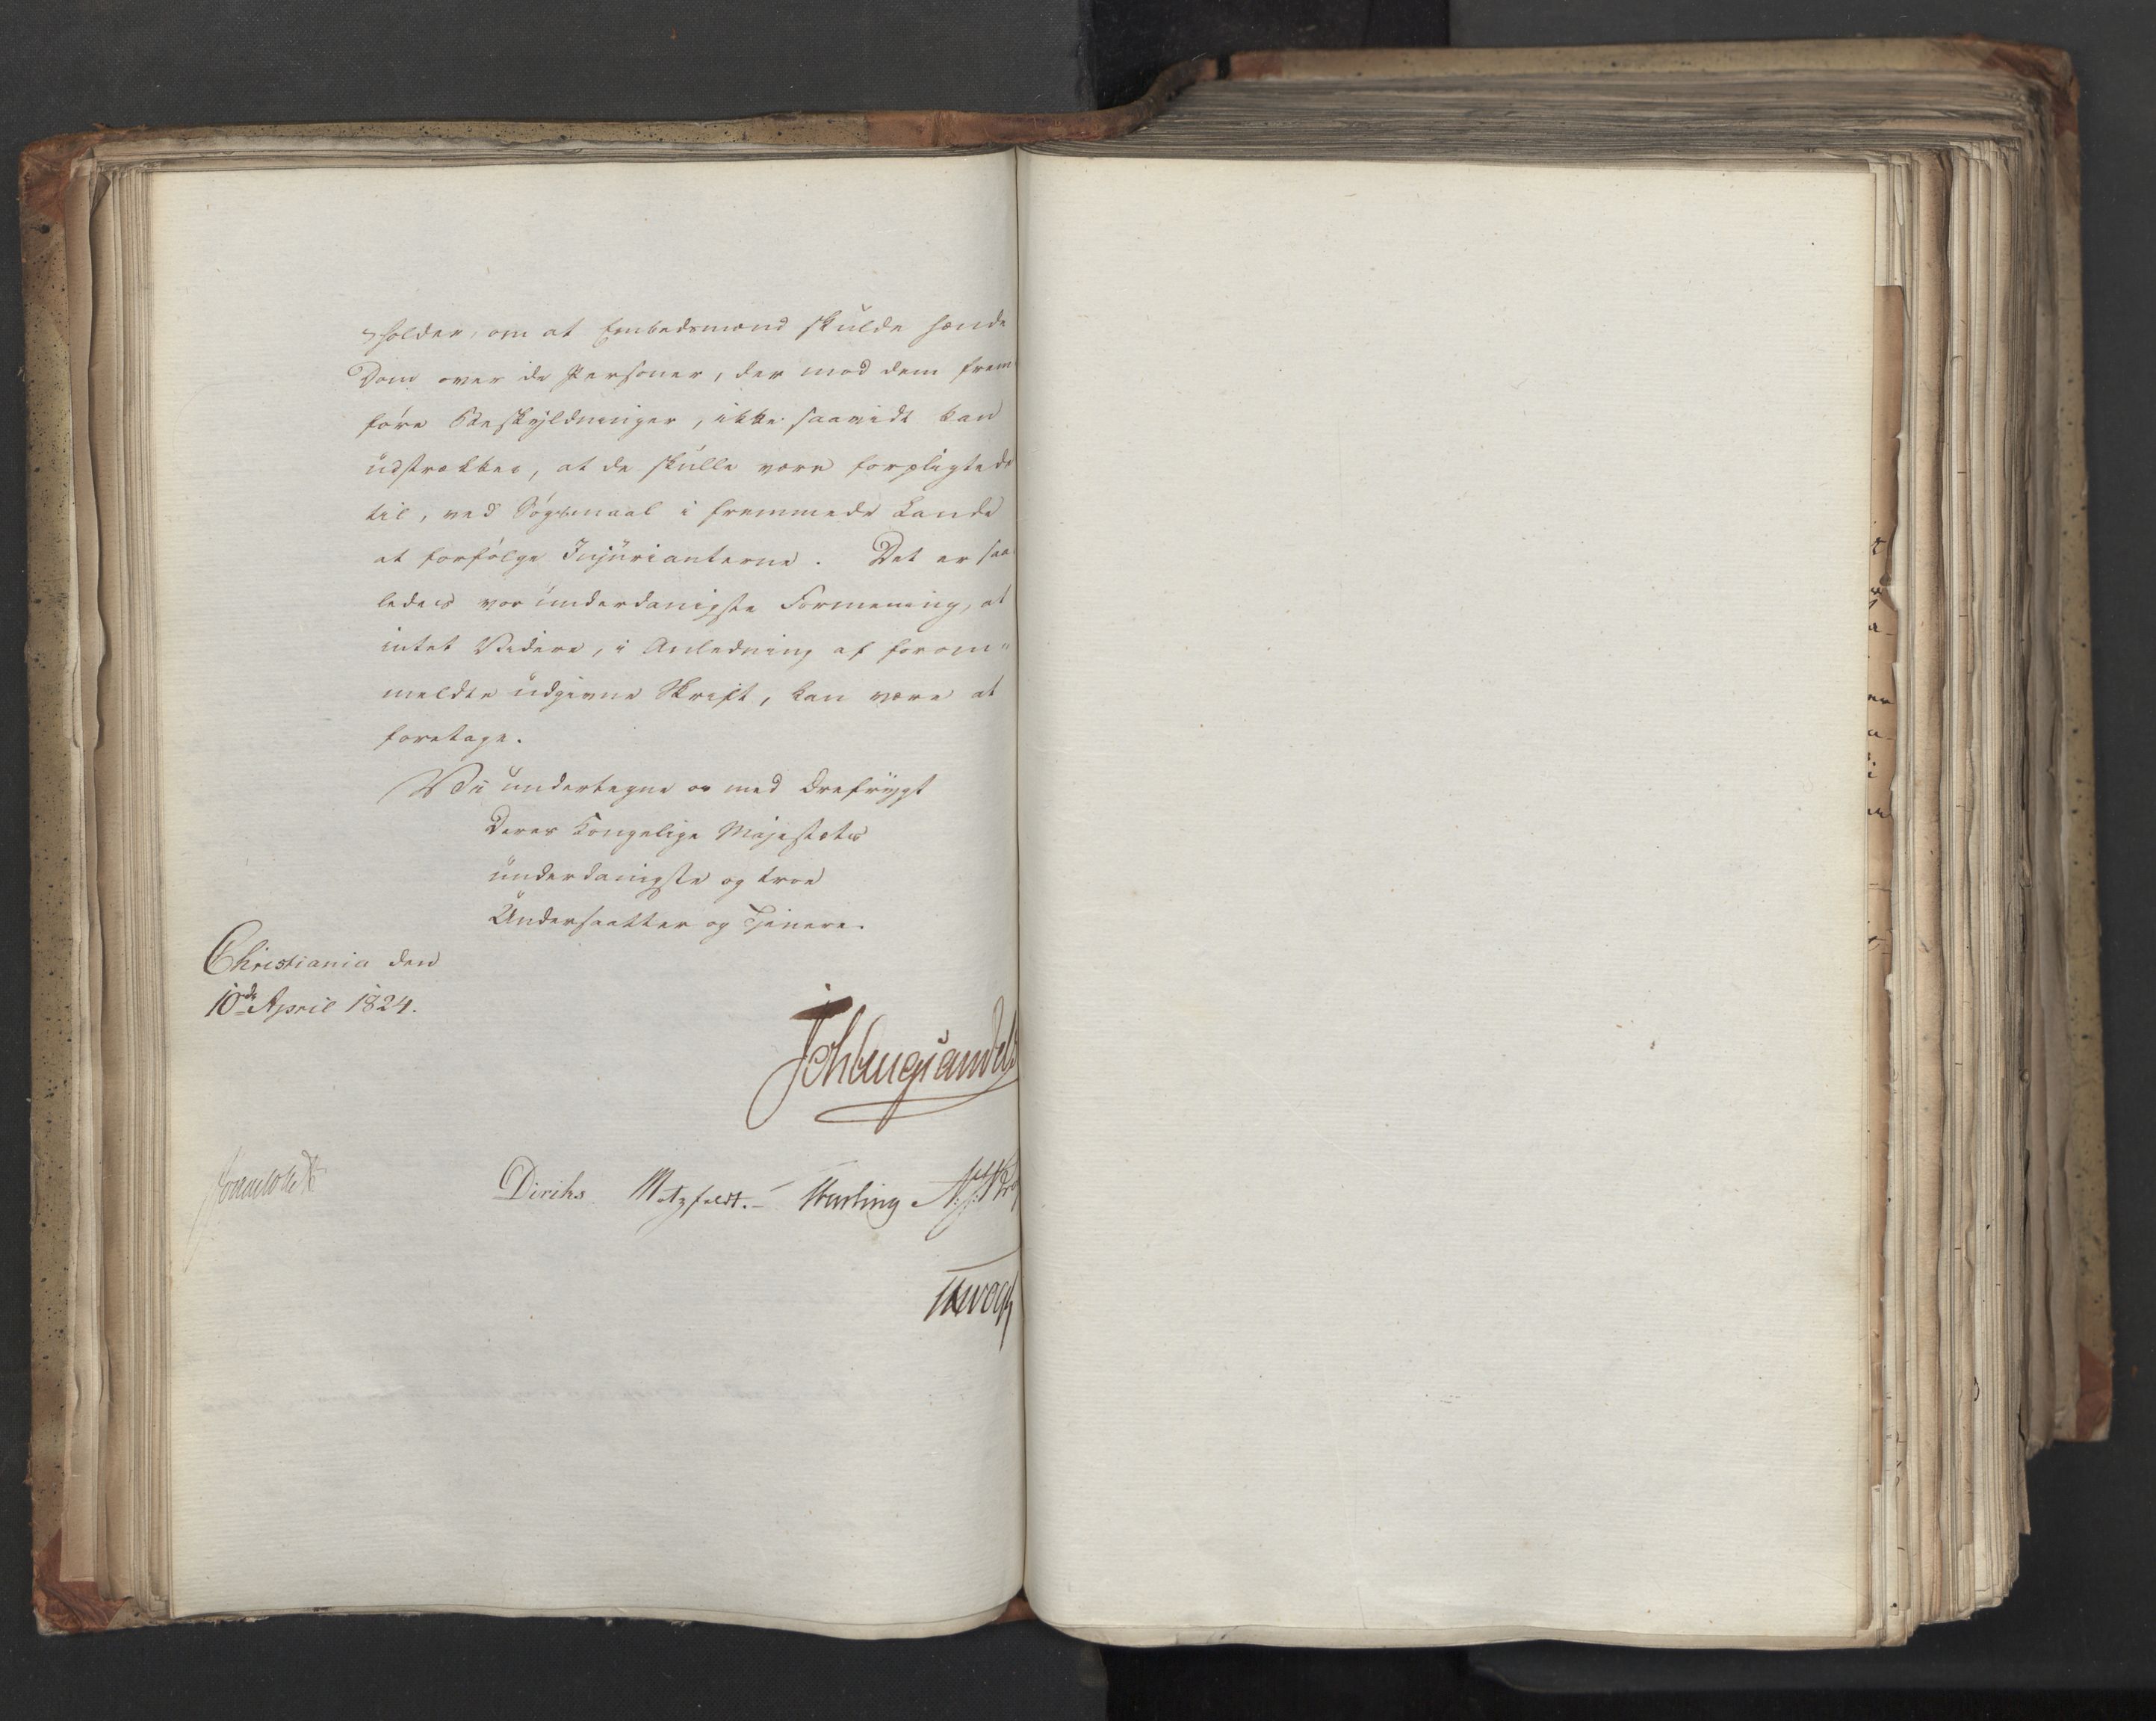 holder, om at Embedsmænd skulde hænde
Dom over de Personer, der mod dem frem
føre Beskyldninger, ikke saavidt kan
udstrækkes, at de skulle være forpligtede
til, ved Søgsmaal i fremmede Lande
at forfølge Injurianterne. Det er saa
ledes vor underdanigste Formening, at
intet Videre, i Anledning af forom-
meldte udgivne Skrift, kan være at
foretage.
Vi undertegne os med Ærefrygt
Deres Kongelige Majestæts
underdanigste og troe
Undersaatter og Tjenere.
Christiania den
10de April 1824.
Joh Aug Sandels
Diriks Motzfeldt.